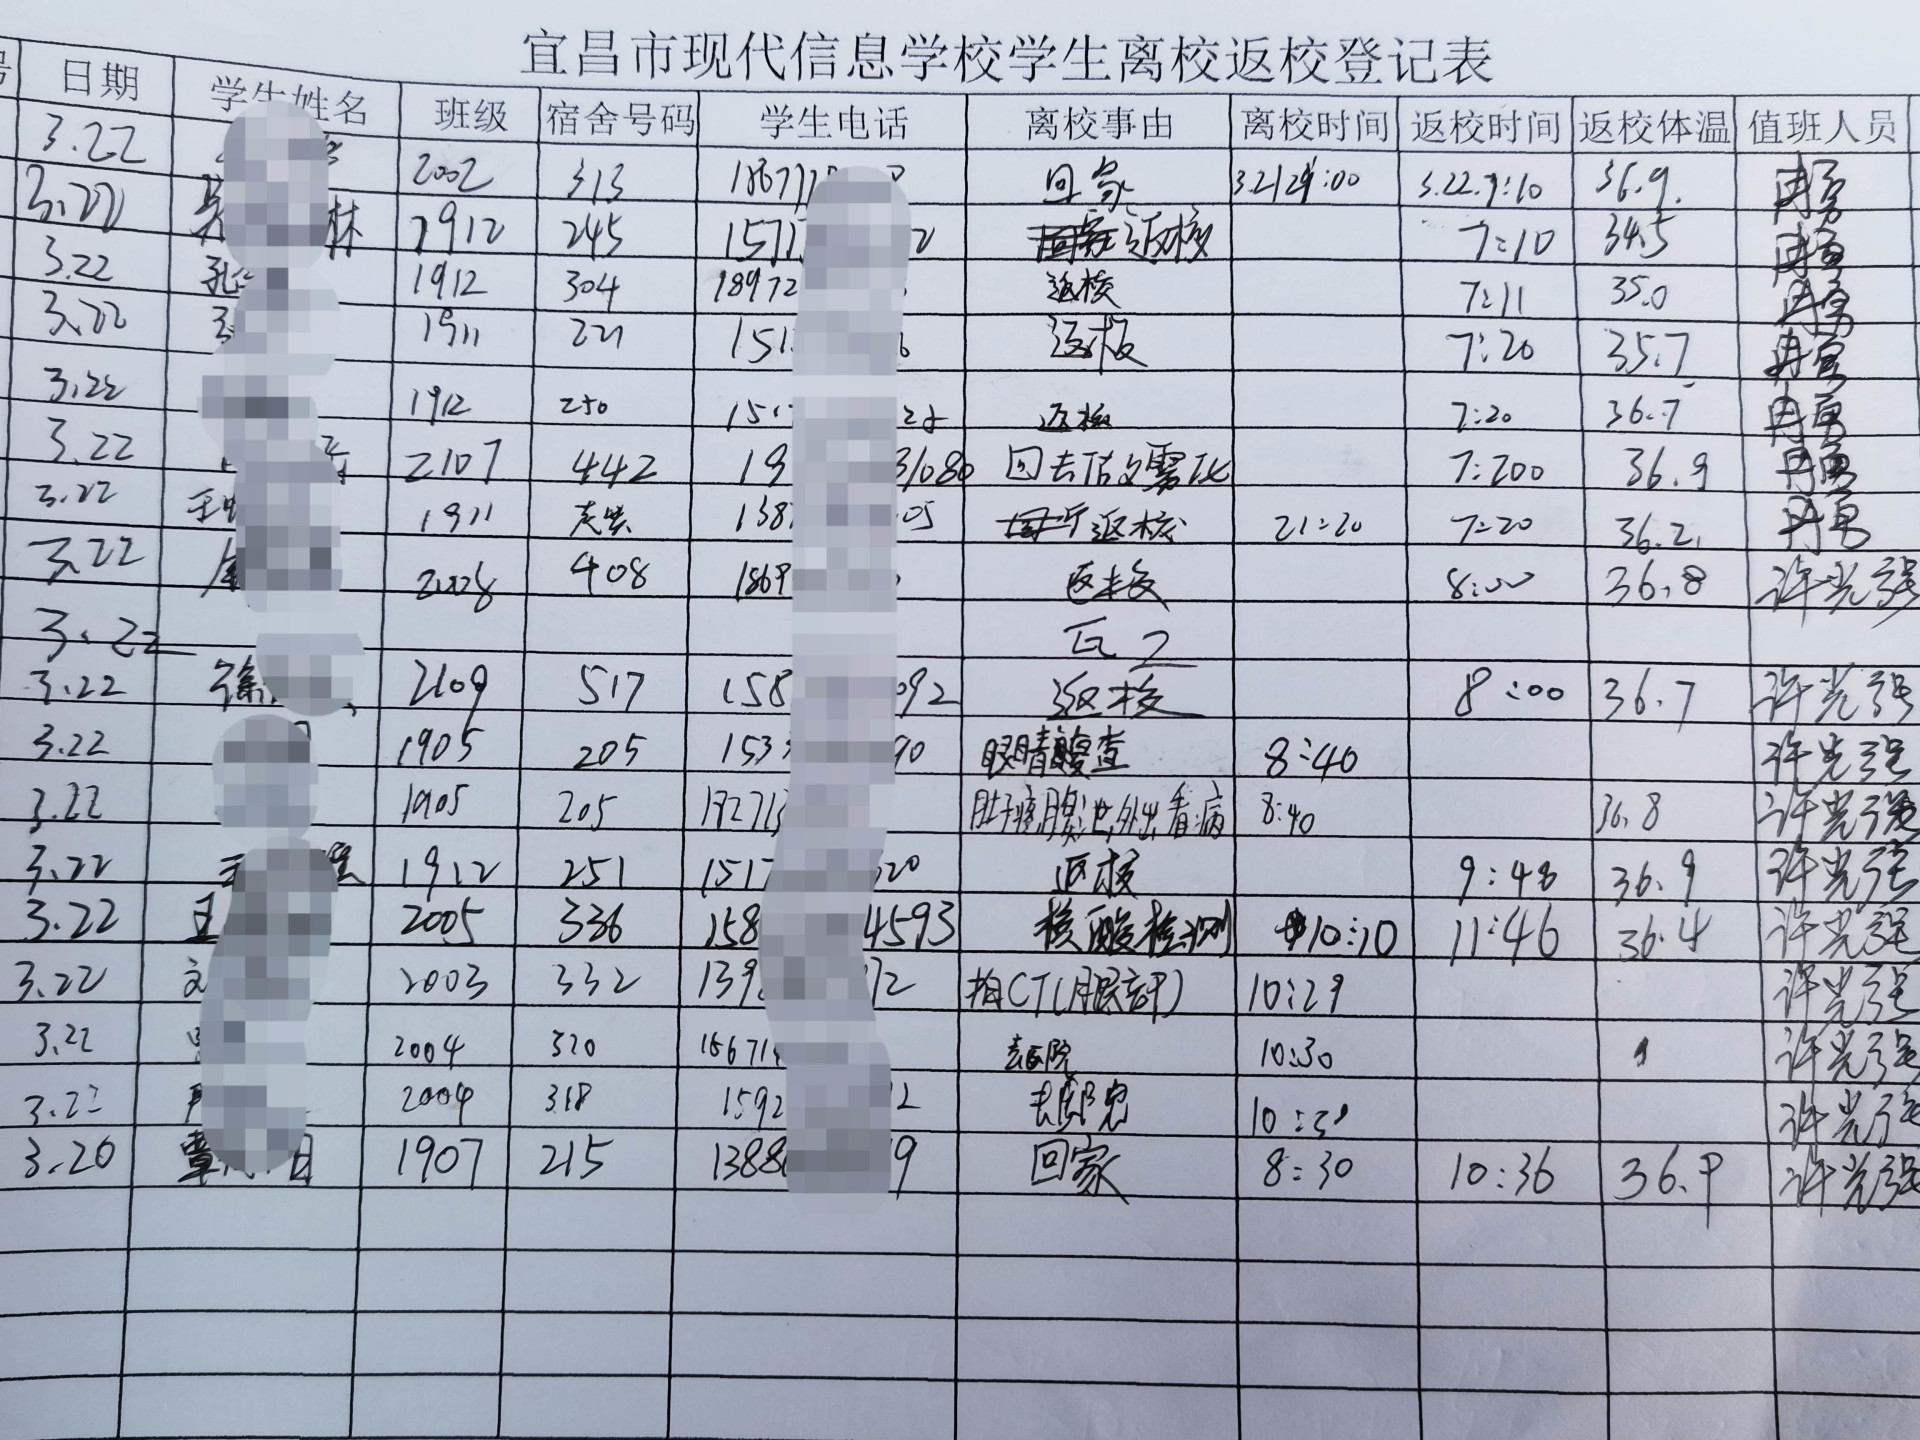 宜昌市现代信息学校学生离校返校登记表
号 日期 学生姓名 班级 宿舍号码 学生电话 离校事由 离校时间 返校时间 返校体温 值班人员
3.22 2002 313 回家 3.21 21:00 3.22.7:10 36.9
3.22 林 1912 245 1571 2 返校 7:10 34.5
3.22 孔 1912 304 18972 返校 7:11 35.0
3.22 1911 221 151 6 返校 7:20 35.7
3.22 1912 250 151 返校 7:20 36.7 冉勇
3.22 2107 442 19 31080 7:200 36.9 冉勇
3.22 王 1911 走读 138 05 返校 21:20 7:20 36.2 冉勇
3.22 2008 408 1869 返校 8:00 36.8 许光强
3.22
3.22 徐 2109 517 158 092 返校 8:00 36.7 许光强
3.22 1905 205 153 90 眼睛复查 8:40 许光强
3.22 1905 205 肚子疼,腹泄,外出看病 8:40 36.8 许光强
3.22 王 1912 251 1517 20 返校 9:48 36.9 许光强
3.22 王 2005 336 158 4593 核酸检测 10:10 11:46 36.4 许光强
3.22 文 2003 332 139 72 拍CT(腿部) 10:29 许光强
3.22 2004 320 15671 去医院 10:30 许光强
3.22 2004 318 1592 2 去医院 许光强
3.20 覃 1907 215 1388 9 回家 8:30 10:36 36.9 许光强